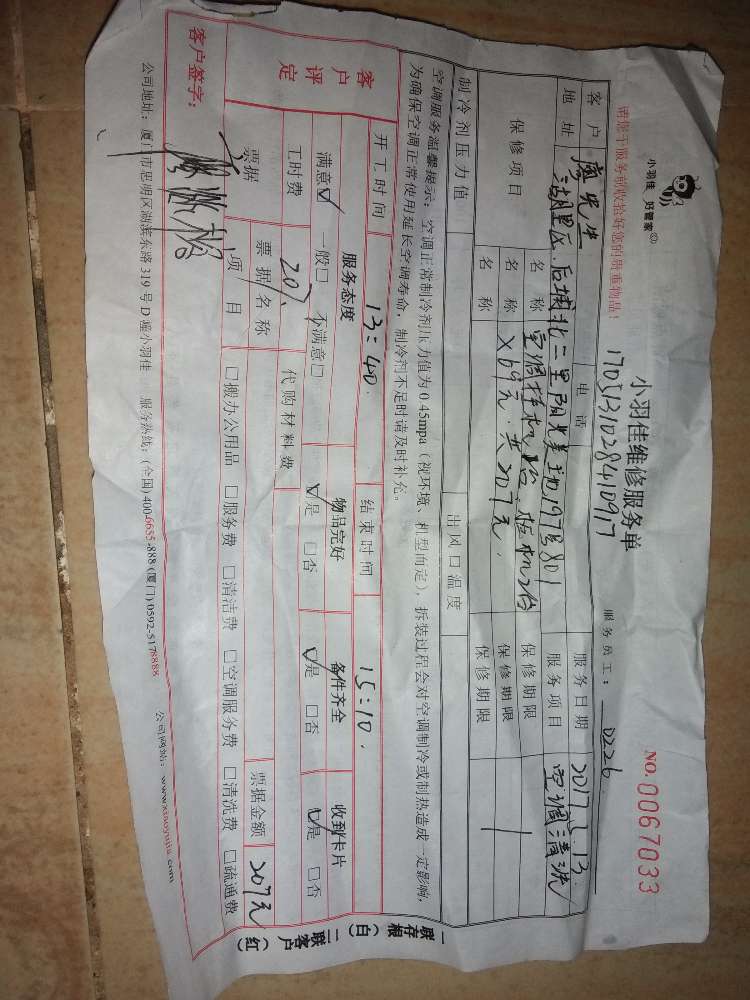 小羽佳 好管家
小羽佳维修服务单
NO.0067033
请您于服务前收拾好您的贵重物品！
170513102840917
服务员工： 0226
客户 廖先生 电话 服务日期 2017.5.13
地址 湖里区.后埔北二里阳光美地197号801 服务项目 空调清洗
保修项目 名称 空调挂机1台.柜机2台 保修期限
名称 ×69元.共207元. 保修期限
名称 保修期限
制冷剂压力值 出风口温度
空调服务温馨提示：空调正常制冷剂压力值为0.45mpa（视环境、机型而定），拆装过程会对空调制冷或制热造成一定影响，
为确保空调正常使用延长空调寿命，制冷剂不足时请及时补充。
开工时间 13:40. 结束时间 15:10.
客户评定 服务态度 物品完好 备件齐全 收到卡片
满意☑ 一般□ 不满意□ ☑是 □否 ☑是 □否 ☑是 □否
工时费 207. 代购材料费
票据 票据名称 票据金额 207元
项目 □搬办公用品 □服务费 □清洁费 □空调服务费 □清洗费 □疏通费
客户签字：
公司地址：厦门市思明区湖滨东路319号D幢小羽佳 服务热线：(全国)400-6655-888(厦门)0592-5178888 公司网站：www.xiaoyujia.com
一联存根（白） 二联客户（红）